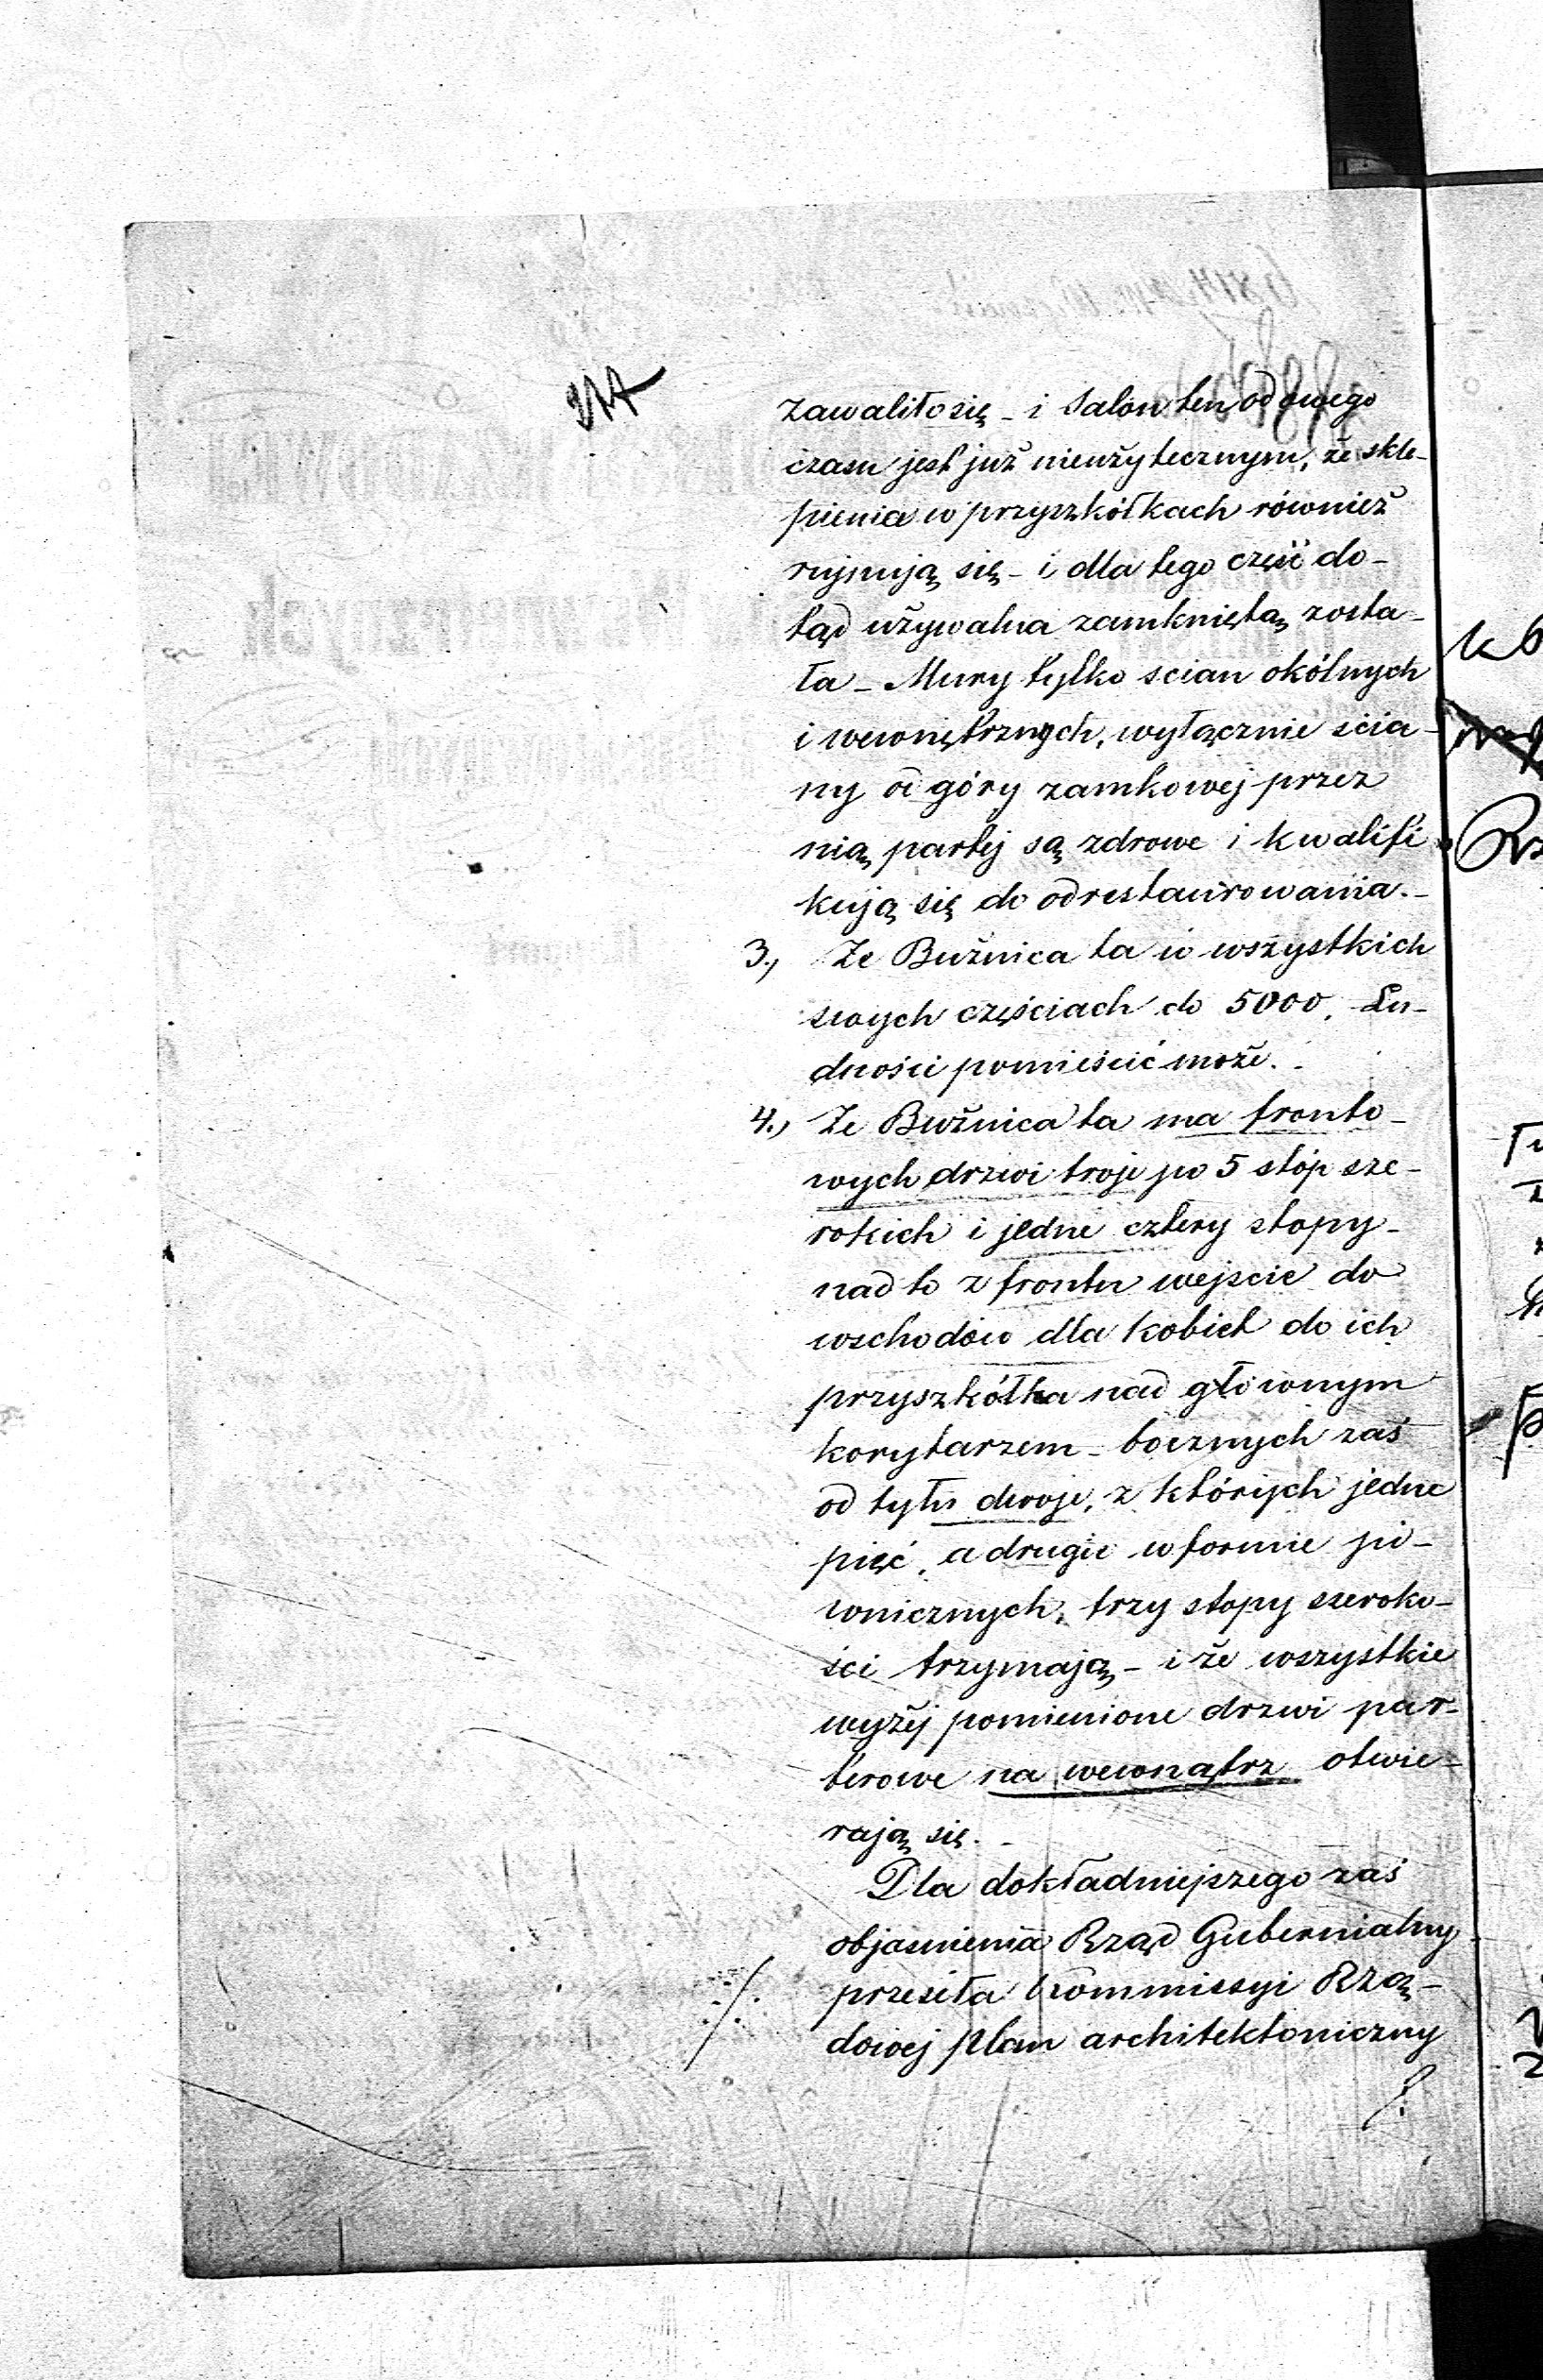 zawaliło się – i salon ten od owego
czasu jest już nieużytecznym, że skle-
pienia w przyszkółkach również
rujnują się – i dla tego część do-
tąd używalna zamkniętą zosta-
ła – Mury tylko scian okólnych
i wewnętrznych, wyłącznie scia-
ny od góry zamkowej przez
nią partej są zdrowe i kwalifi
kują się do odrestaurowania. –
3., Że Bużnica ta w wszystkich
swych częściach do 5000, Lu-
dności pomieścić może. –
4., Że Bużnica ta ma fronto-
wych drzwi troje po 5 stóp sze-
rokich i jedne cztery stopy –
nad to z frontu wejscie do
wschodów dla kobiet do ich
przyszkółka nad głównym
korytarzem – bocznych zaś
od tyłu dwoje, z których jedne
pięć, a drugie w formie pi-
wnicznych, trzy stopy szeroko-
ści trzymają – i że wszystkie
wyżej pomienione drzwi par-
terowe na wewnątrz otwie-
rają się. –
Dla dokładniejszego zaś
objasnienia Rząd Gubernialny
./. przeseła Kommissyi Rzą-
dowej plan architektoniczny